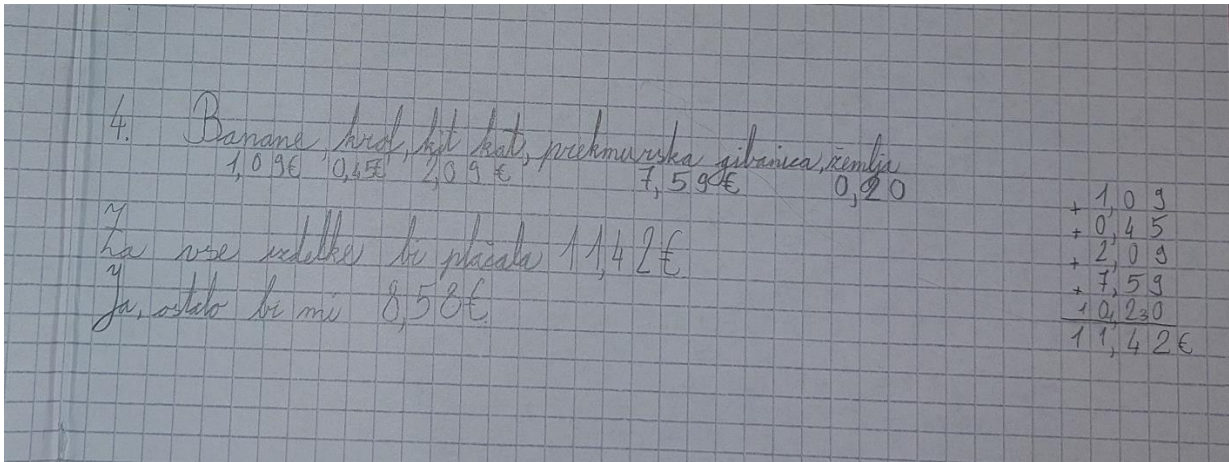 4. Banane, krof, kit kat, prekmurska gibanica, žemlja
1,09€ 0,45€ 2,09€ 7,59€ 0,20
Za vse izdelke bi plačala 11,42€.
Ja, ostalo bi mi 8,58€.
1,09
+ 0,45
+ 2,09
+ 7,59
+ 0,20
11,42€